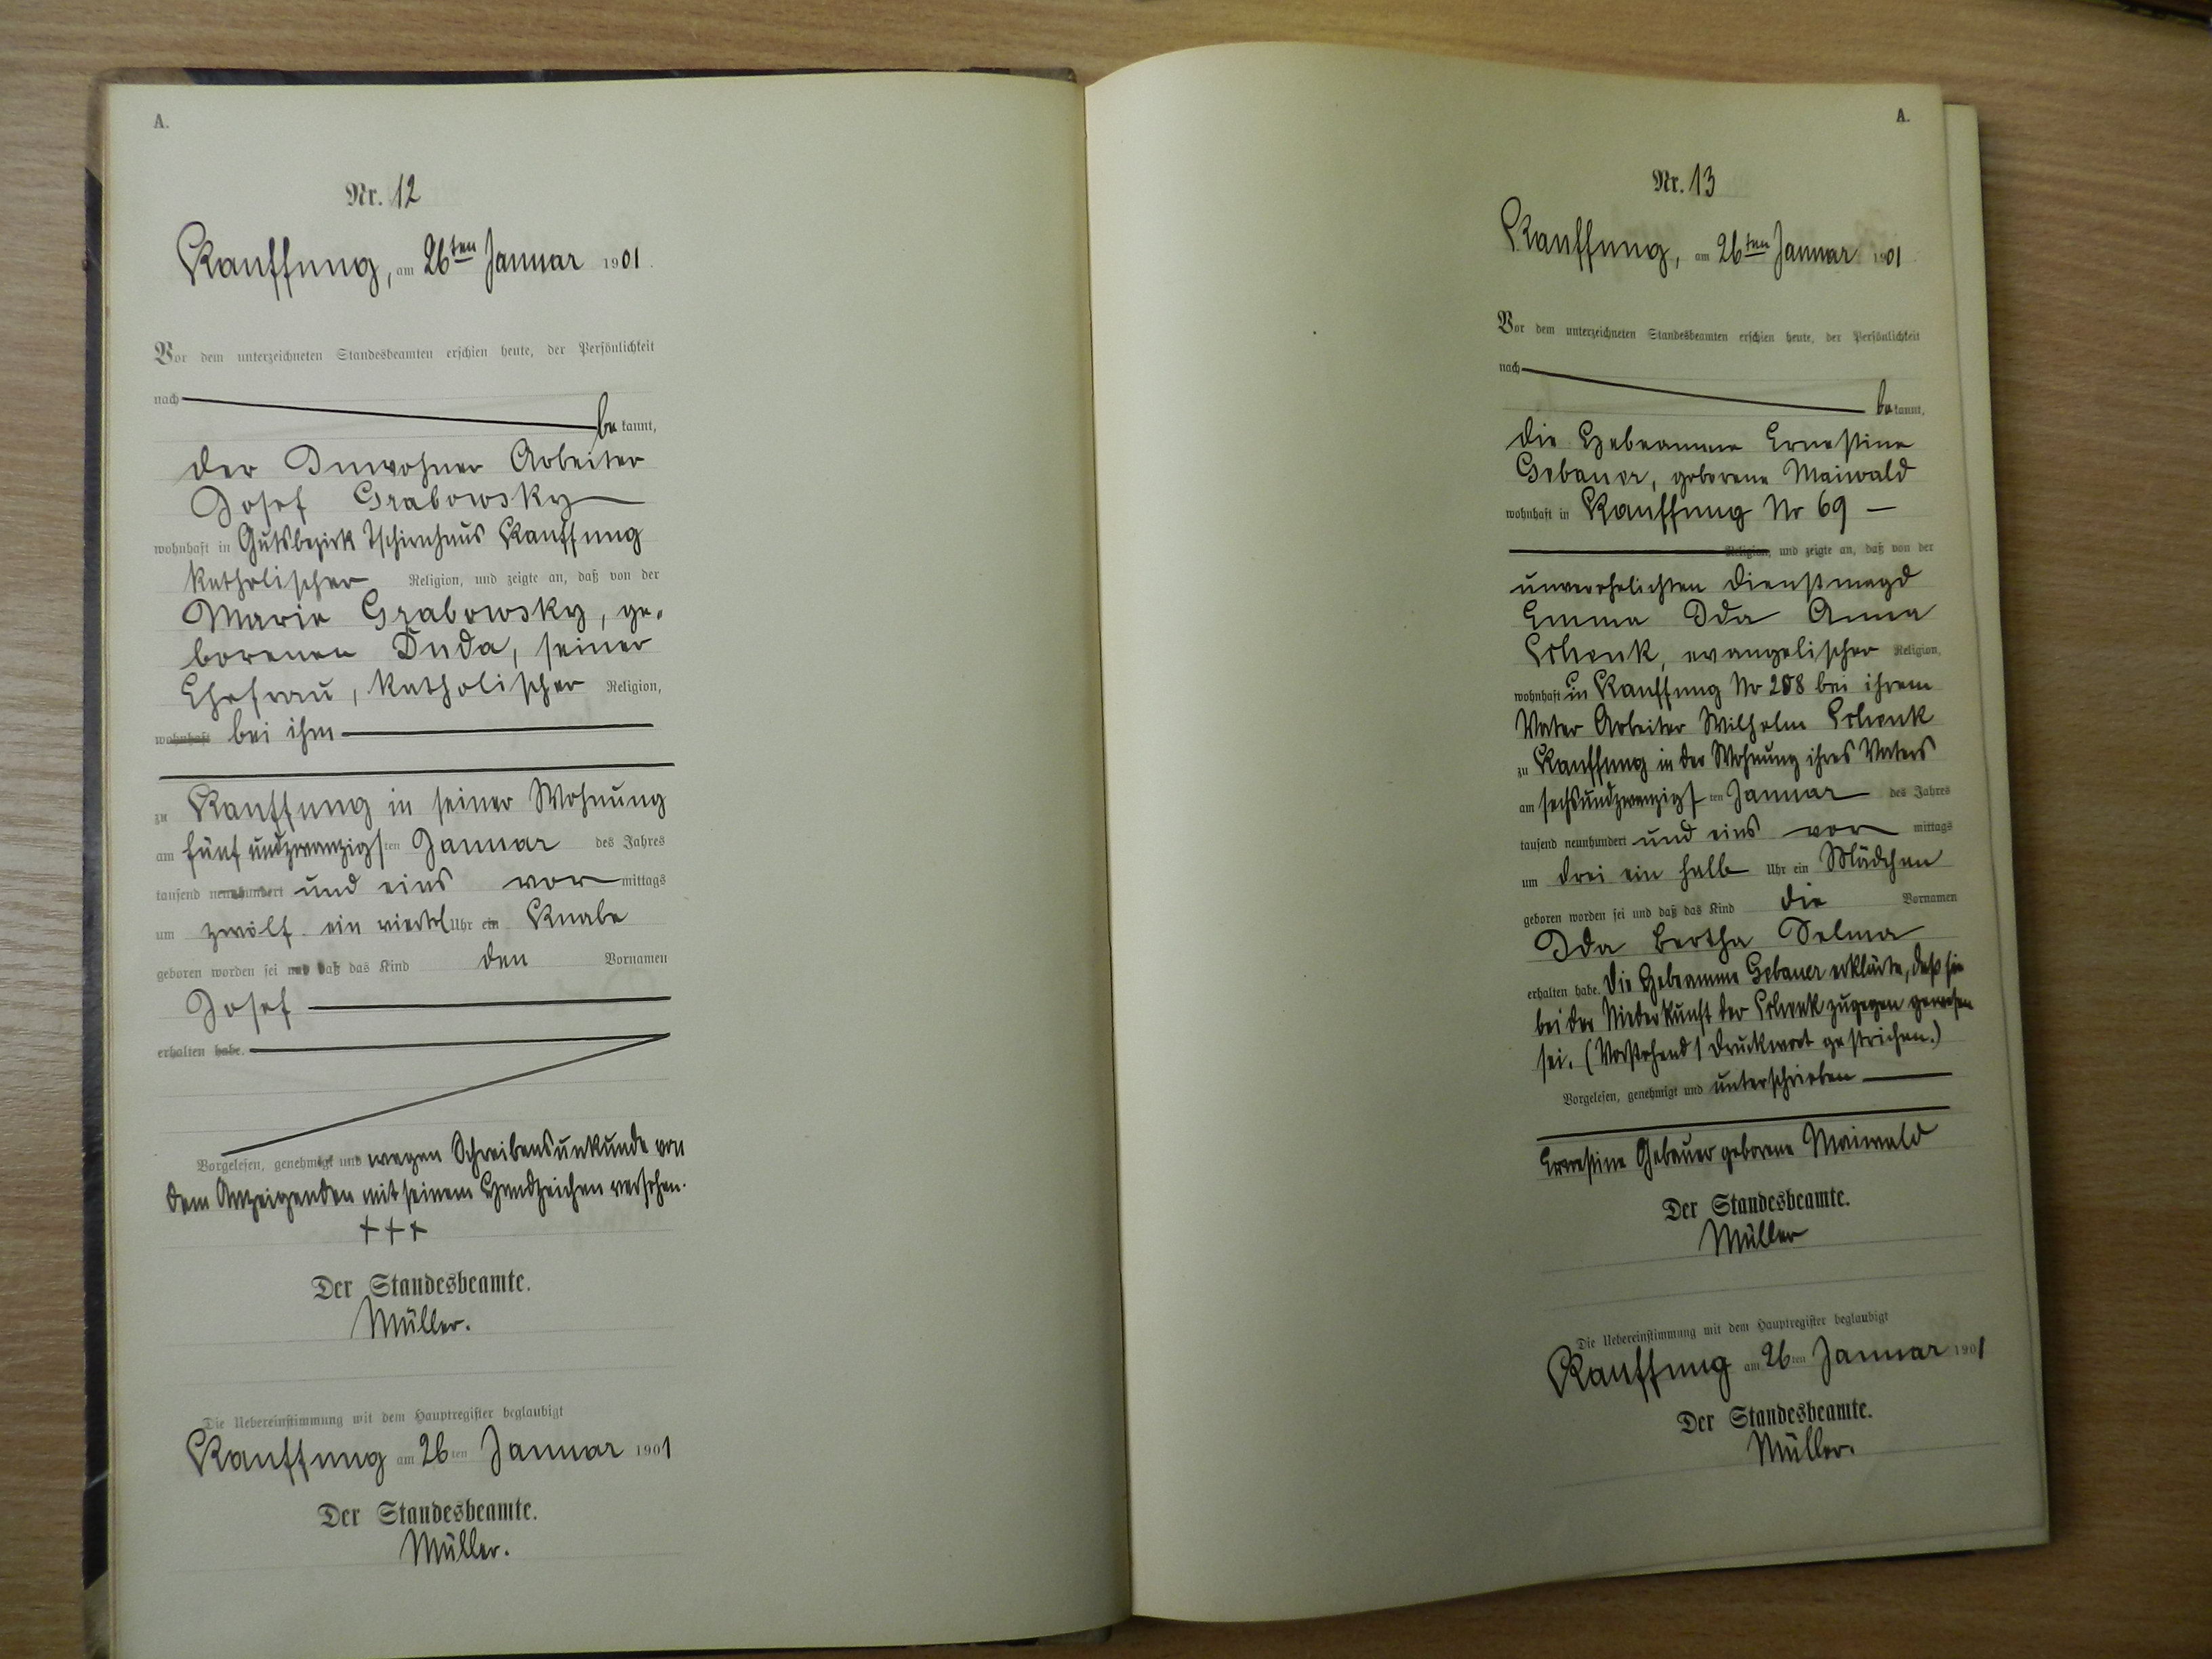 A.
Nr. 12
Kauffung, am 26ten Januar 1901.
Vor dem unterzeichneten Standesbeamten erschien heute, der Persönlichkeit
nach
be kannt,
der Inwohner Arbeiter
Josef Grabowsky
wohnhaft in Gutsbezirk Tschirnhaus Kauffung
katholischer Religion, und zeigte an, daß von der
Marie Grabowsky, ge-
borenen Duda, seiner
Ehefrau, katholischer Religion,
wohnhaft bei ihm
zu Kauffung in seiner Wohnung
am fünfundzwanzigsten Januar des Jahres
tausend neunhundert und eins vor mittags
um zwölf ein viertel Uhr ein Knabe
geboren worden sei und daß das Kind den Vornamen
Josef
erhalten habe.
Vorgelesen, genehmigt und wegen Schreibensunkunde von
dem Anzeigenden mit seinem Handzeichen versehen.
+++
Der Standesbeamte.
Müller.
Die Uebereinstimmung mit dem Hauptregister beglaubigt
Kauffung am 26ten Januar 1901
Der Standesbeamte.
Müller.
A.
Nr. 13
Kauffung, am 26ten Januar 1901
Vor dem unterzeichneten Standesbeamten erschien heute, der Persönlichkeit
nach
be kannt,
die Hebeamme Ernestine
Gebauer, geborene Maiwald
wohnhaft in Kauffung Nr 69 —
Religion, und zeigte an, daß von der
unverehelichten Dienstmagd
Emma Ida Anna
Schenk, evangelischer Religion,
wohnhaft in Kauffung Nr 208 bei ihrem
Vater Arbeiter Wilhelm Schenk
zu Kauffung in der Wohnung ihres Vaters
am sechsundzwanzigsten Januar des Jahres
tausend neunhundert und eins vor mittags
um drei ein halb Uhr ein Mädchen
geboren worden sei und daß das Kind die Vornamen
Ida Bertha Selma
erhalten habe. Die Hebeamme Gebauer erklärte, daß sie
bei der Niederkunft der Schenk zugegen gewesen
sei. (Vorstehend 1 Druckwort gestrichen.)
Vorgelesen, genehmigt und unterschrieben
Ernestine Gebauer geborene Maiwald
Der Standesbeamte.
Müller
Die Uebereinstimmung mit dem Hauptregister beglaubigt
Kauffung am 26ten Januar 1901
Der Standesbeamte.
Müller.